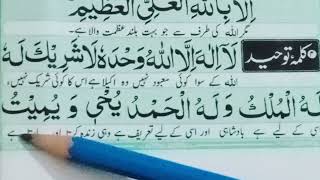 اِلَّا بِاللّٰهِ الْعَلِیِّ الْعَظِیْمِ
مگر اللہ کی طرف سے جو بہت بلند عظمت والا ہے۔
کلمۂ توحید لَآ اِلٰهَ اِلَّا اللّٰهُ وَحْدَهٗ لَا شَرِیْكَ لَهٗ
اللہ کے سوا کوئی معبود نہیں وہ اکیلا ہے اس کا کوئی شریک نہیں
لَهُ الْمُلْكُ وَ لَهُ الْحَمْدُ یُحْیٖ وَ یُمِیْتُ
اسی کے لیے ہے بادشاہی اور اسی کے لیے تعریف ہے وہی زندہ کرتا اور مارتا ہے